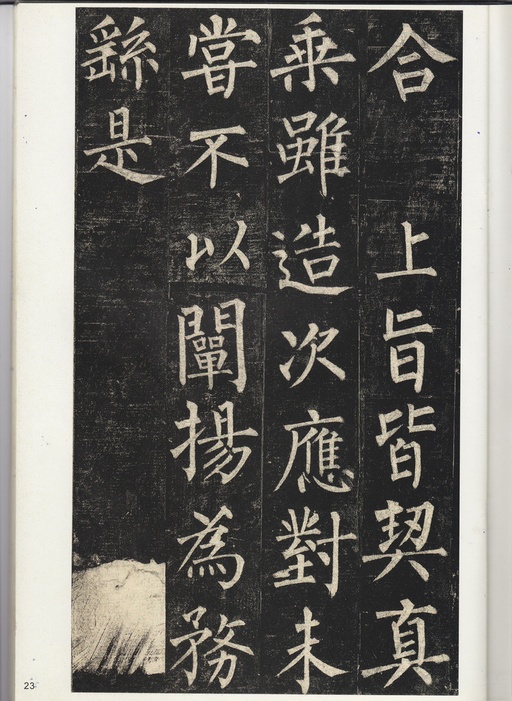 合 上旨皆契真
乗雖造次應對未
甞不以闡揚為務
繇是
23